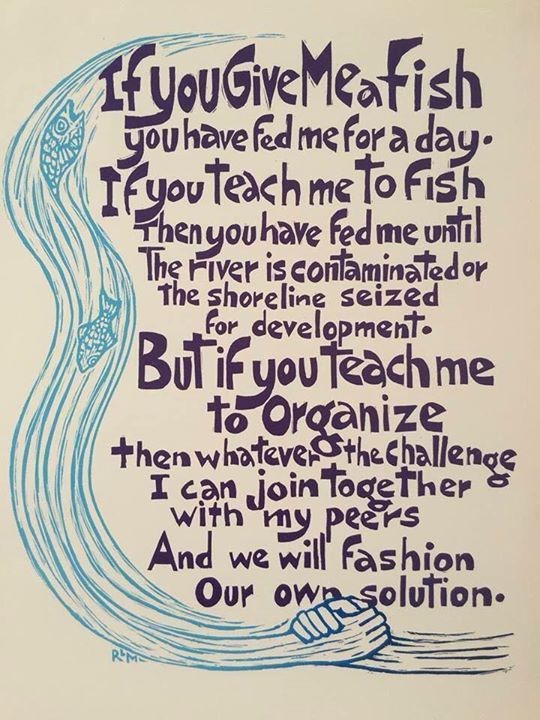 If you Give Me a Fish
you have fed me for a day.
If you Teach me To Fish
Then you have fed me until
The river is contaminated or
the shoreline seized
for development.
But if you Teach me
to Organize
then whatever the challenge
I can join Together
with my peers
And we will fashion
Our own solution.
RLM